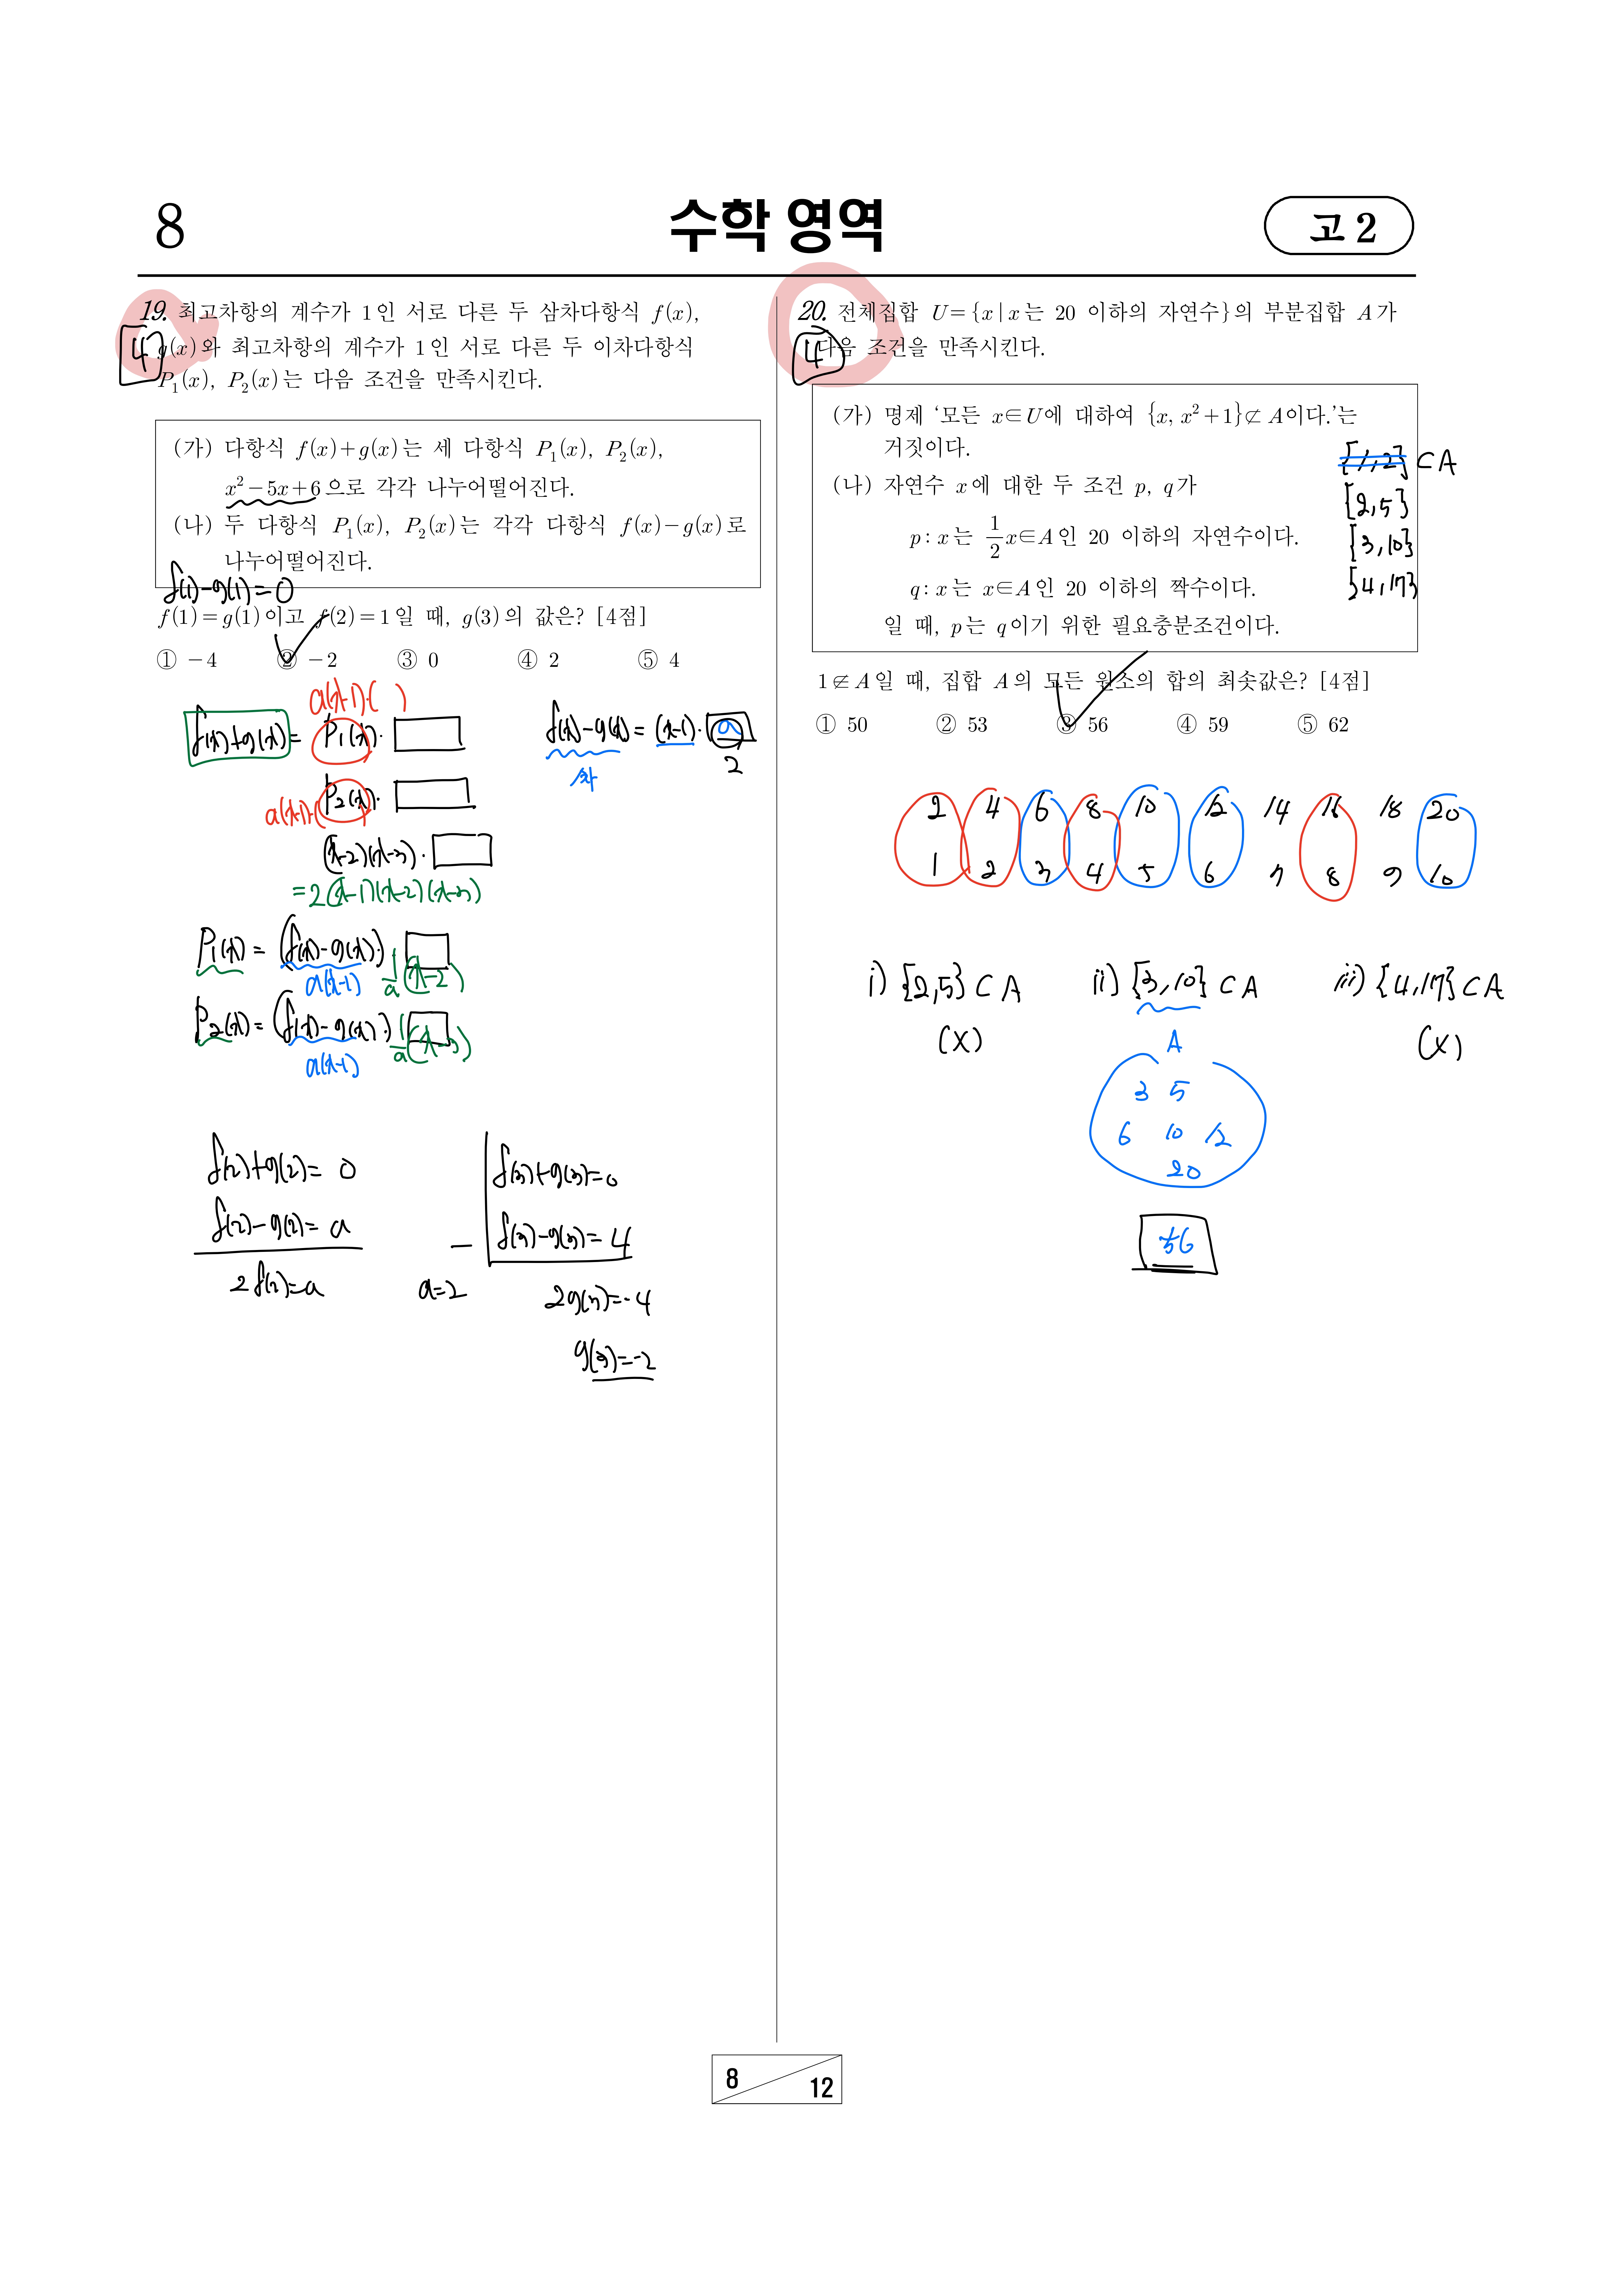 8
수학 영역
고 2
19. 최고차항의 계수가 1인 서로 다른 두 삼차다항식 f(x),
g(x)와 최고차항의 계수가 1인 서로 다른 두 이차다항식
P₁(x), P₂(x)는 다음 조건을 만족시킨다.
4
(가) 다항식 f(x)+g(x)는 세 다항식 P₁(x), P₂(x),
x²-5x+6으로 각각 나누어떨어진다.
(나) 두 다항식 P₁(x), P₂(x)는 각각 다항식 f(x)-g(x)로
나누어떨어진다.
f(1)-g(1)=0
f(1)=g(1)이고 f(2)=1일 때, g(3)의 값은? [4점]
① -4 ② -2 ③ 0 ④ 2 ⑤ 4
a(x-1)·( )
f(x)+g(x)= P₁(x)·
P₂(x)·
a(x-1)·( )
(x-2)(x-3)·
=2(x-1)(x-2)(x-3)
f(x)-g(x)=(x-1)·a
2
P₁(x)=(f(x)-g(x))·
a(x-1) 1/a (x-2)
P₂(x)=(f(x)-g(x))·
a(x-1) 1/a (x-3)
f(2)+g(2)= 0
f(2)-g(2)= a
2f(2)=a
a=2
f(3)+g(3)=0
- f(3)-g(3)=4
2g(3)=-4
g(3)=-2
20. 전체집합 U={x|x는 20 이하의 자연수}의 부분집합 A가
다음 조건을 만족시킨다.
4
(가) 명제 ‘모든 x∈U에 대하여 {x, x²+1}⊄A이다.’는
거짓이다.
(나) 자연수 x에 대한 두 조건 p, q가
p : x는 1/2 x∈A인 20 이하의 자연수이다.
q : x는 x∈A인 20 이하의 짝수이다.
일 때, p는 q이기 위한 필요충분조건이다.
{1,2} ⊂A
{2,5}
{3,10}
{4,17}
1∉A일 때, 집합 A의 모든 원소의 합의 최솟값은? [4점]
① 50 ② 53 ③ 56 ④ 59 ⑤ 62
2 4 6 8 10 12 14 16 18 20
1 2 3 4 5 6 7 8 9 10
i) {2,5}⊂A ii) {3,10}⊂A iii) {4,17}⊂A
(X) (X)
A
3 5
6 10 12
20
56
8
12